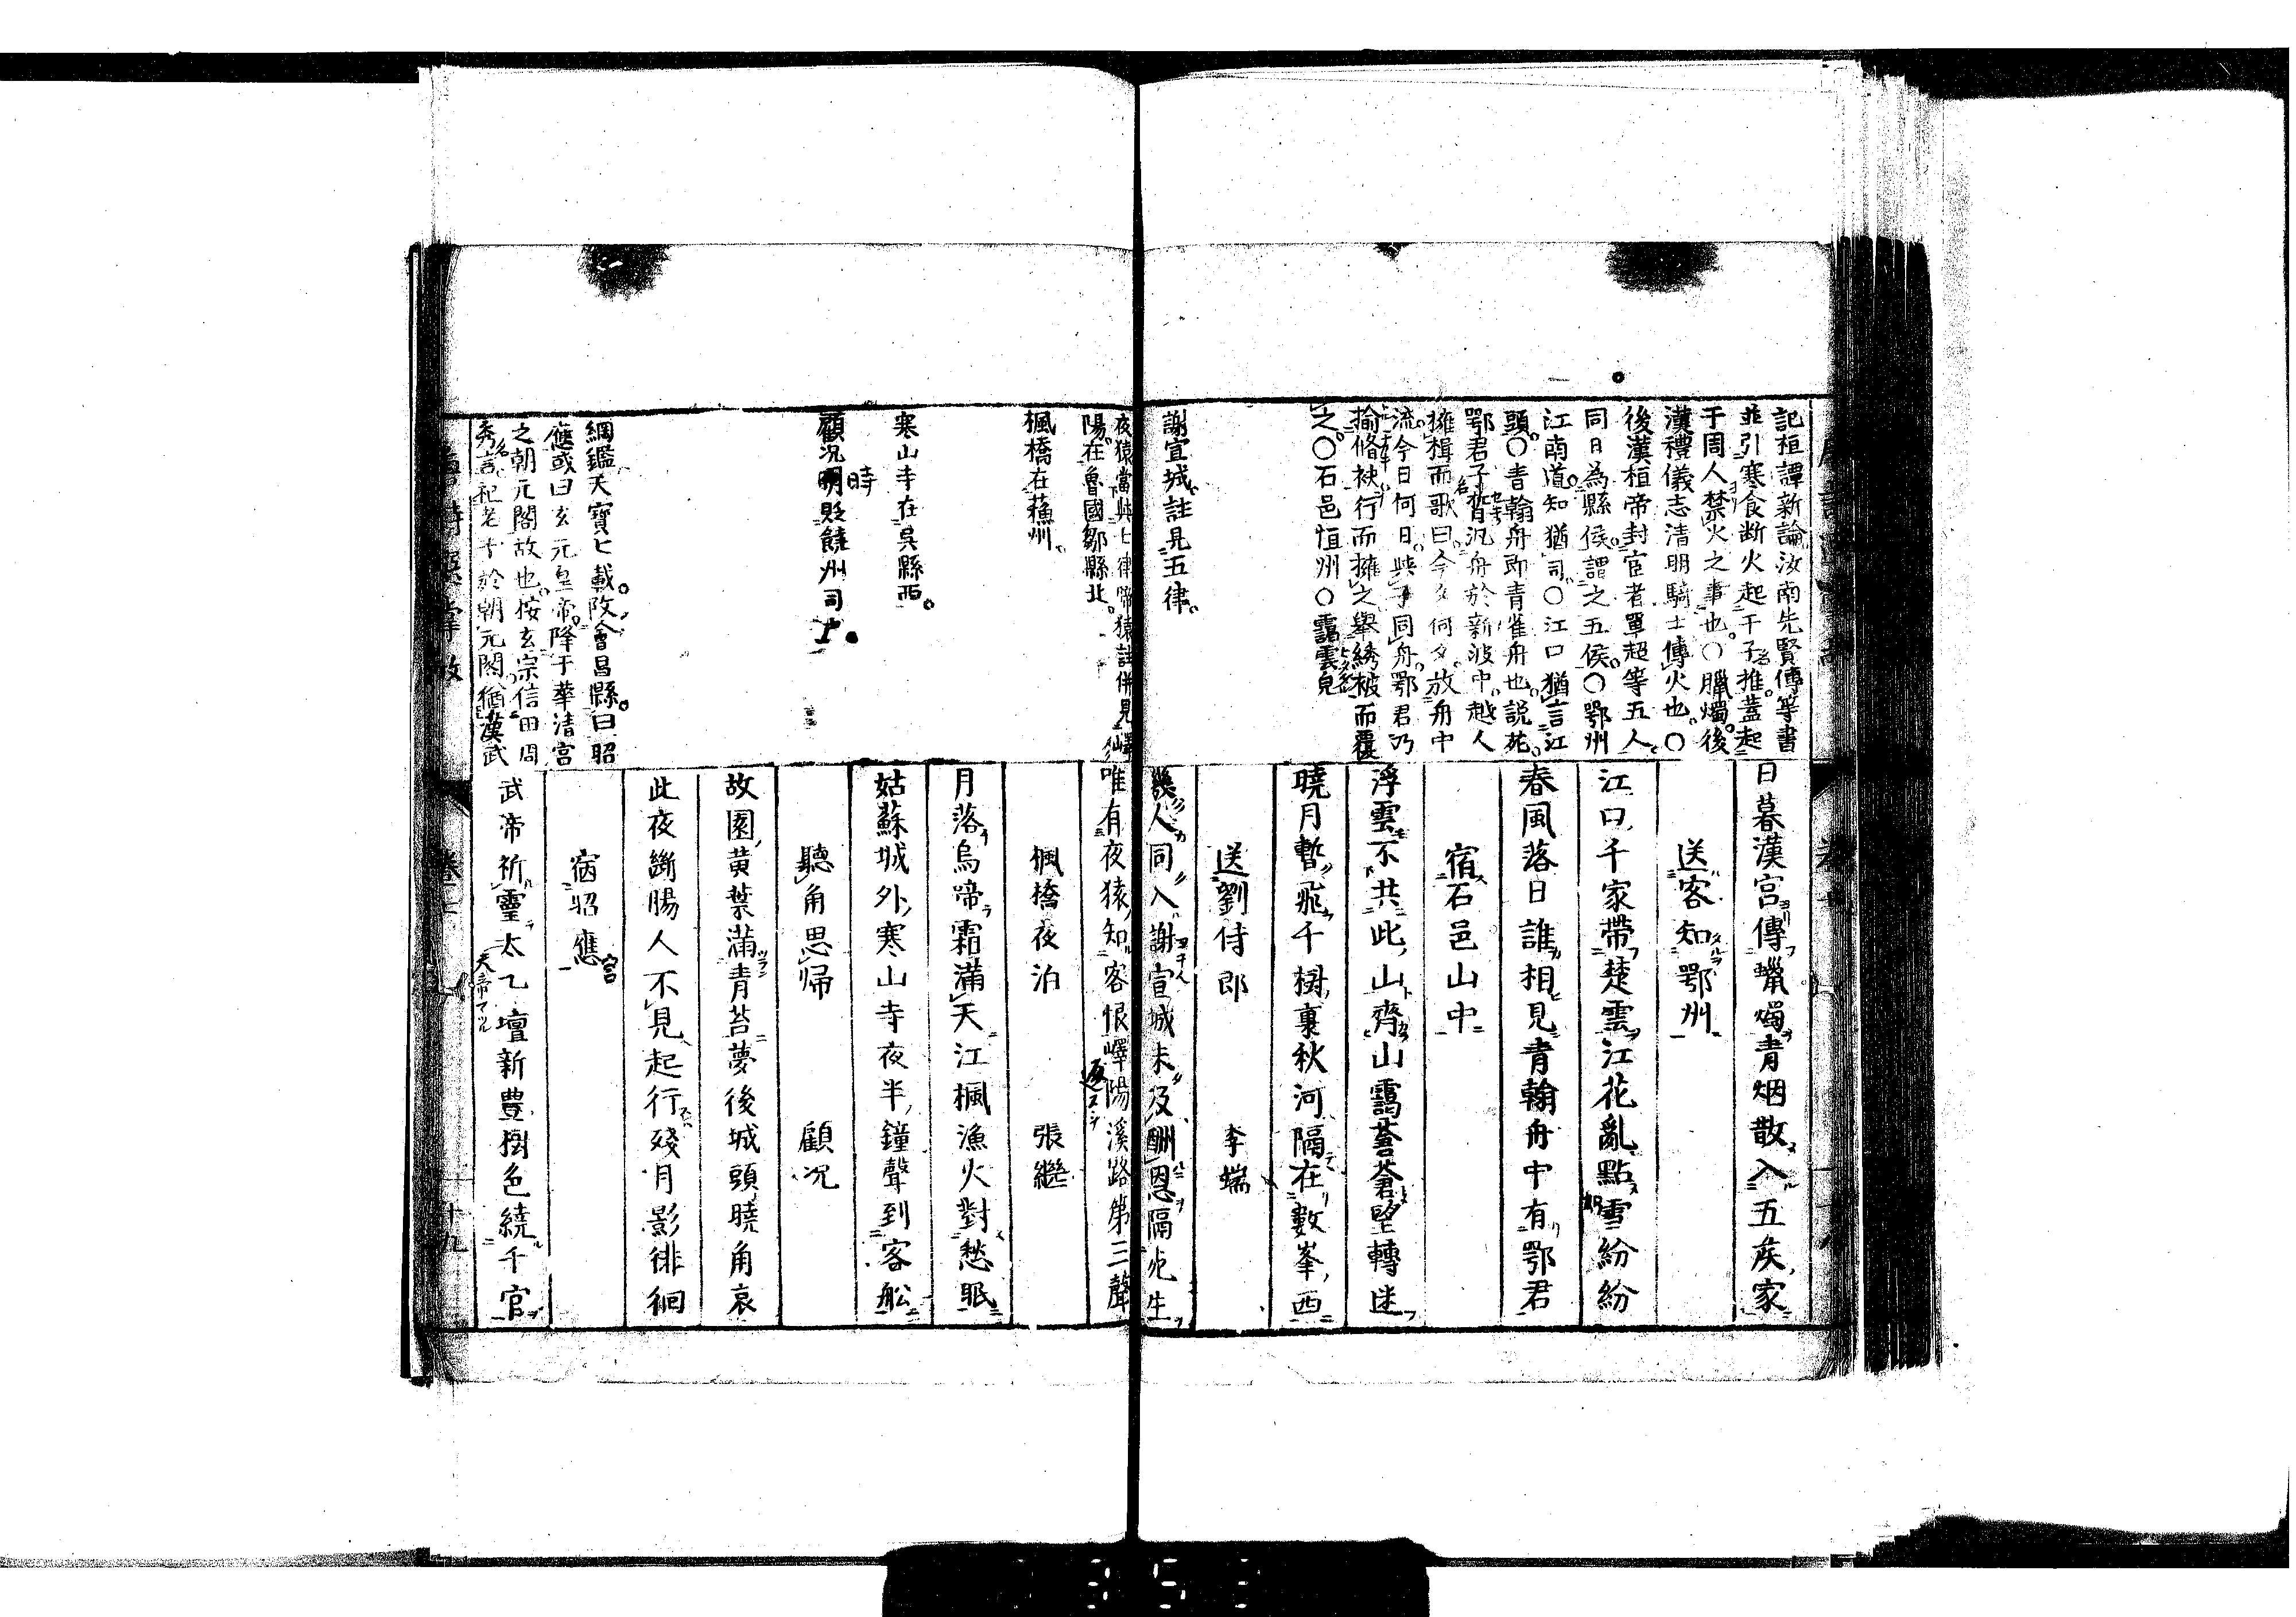 記桓譚新論汝南先賢傳等書
並引寒食断火起于子推蓋起
于周人禁火之事也〇臘燭後
漢禮儀志清明騎士傳火也〇
後漢桓帝封宦者單超等五人
同日為縣侯謂之五侯〇鄂州
江南道知猶司〇江口猶言江
頭〇青翰舟即青雀舟也說苑
鄂君子晳汎舟於新波中越人
擁楫而歌曰今夕何夕放舟中
流今日何日與子同舟鄂君乃
揄脩袂行而擁之舉綉被而覆
之〇石邑恒州〇靄雲皃
謝宣城註見五律
日暮漢宮傳蠟燭青烟散入五矦家
送客知鄂州
江口千家帶楚雲江花亂點雪紛紛
春風落日誰相見青翰舟中有鄂君
宿石邑山中
浮雲不共此山齊山靄蒼蒼望轉迷
曉月暫飛千樹裏秋河隔在數峯西
送劉侍郎 李端
幾人同入謝宣城未及酬恩隔死生
夜猿當與七律啼猿註併見嶧
陽在魯國鄒縣北
楓橋在蘓州
寒山寺在吳縣西
顧况時貶饒州司戶
綱鑑天寶七載改會昌縣曰昭
應或曰玄元皇帝降于華清宮
之朝元閣故也按玄宗信田同
秀言祀老子於朝元閣猶漢武
唯有夜猿知客恨嶧陽溪路第三聲
楓橋夜泊 張繼
月落烏啼霜滿天江楓漁火對愁眠
姑蘇城外寒山寺夜半鐘聲到客舩
聽角思歸 顧况
故園黄葉滿青苔夢後城頭曉角哀
此夜斷腸人不見起行殘月影徘徊
宿昭應宮
武帝祈靈太乙壇新豊樹色繞千官